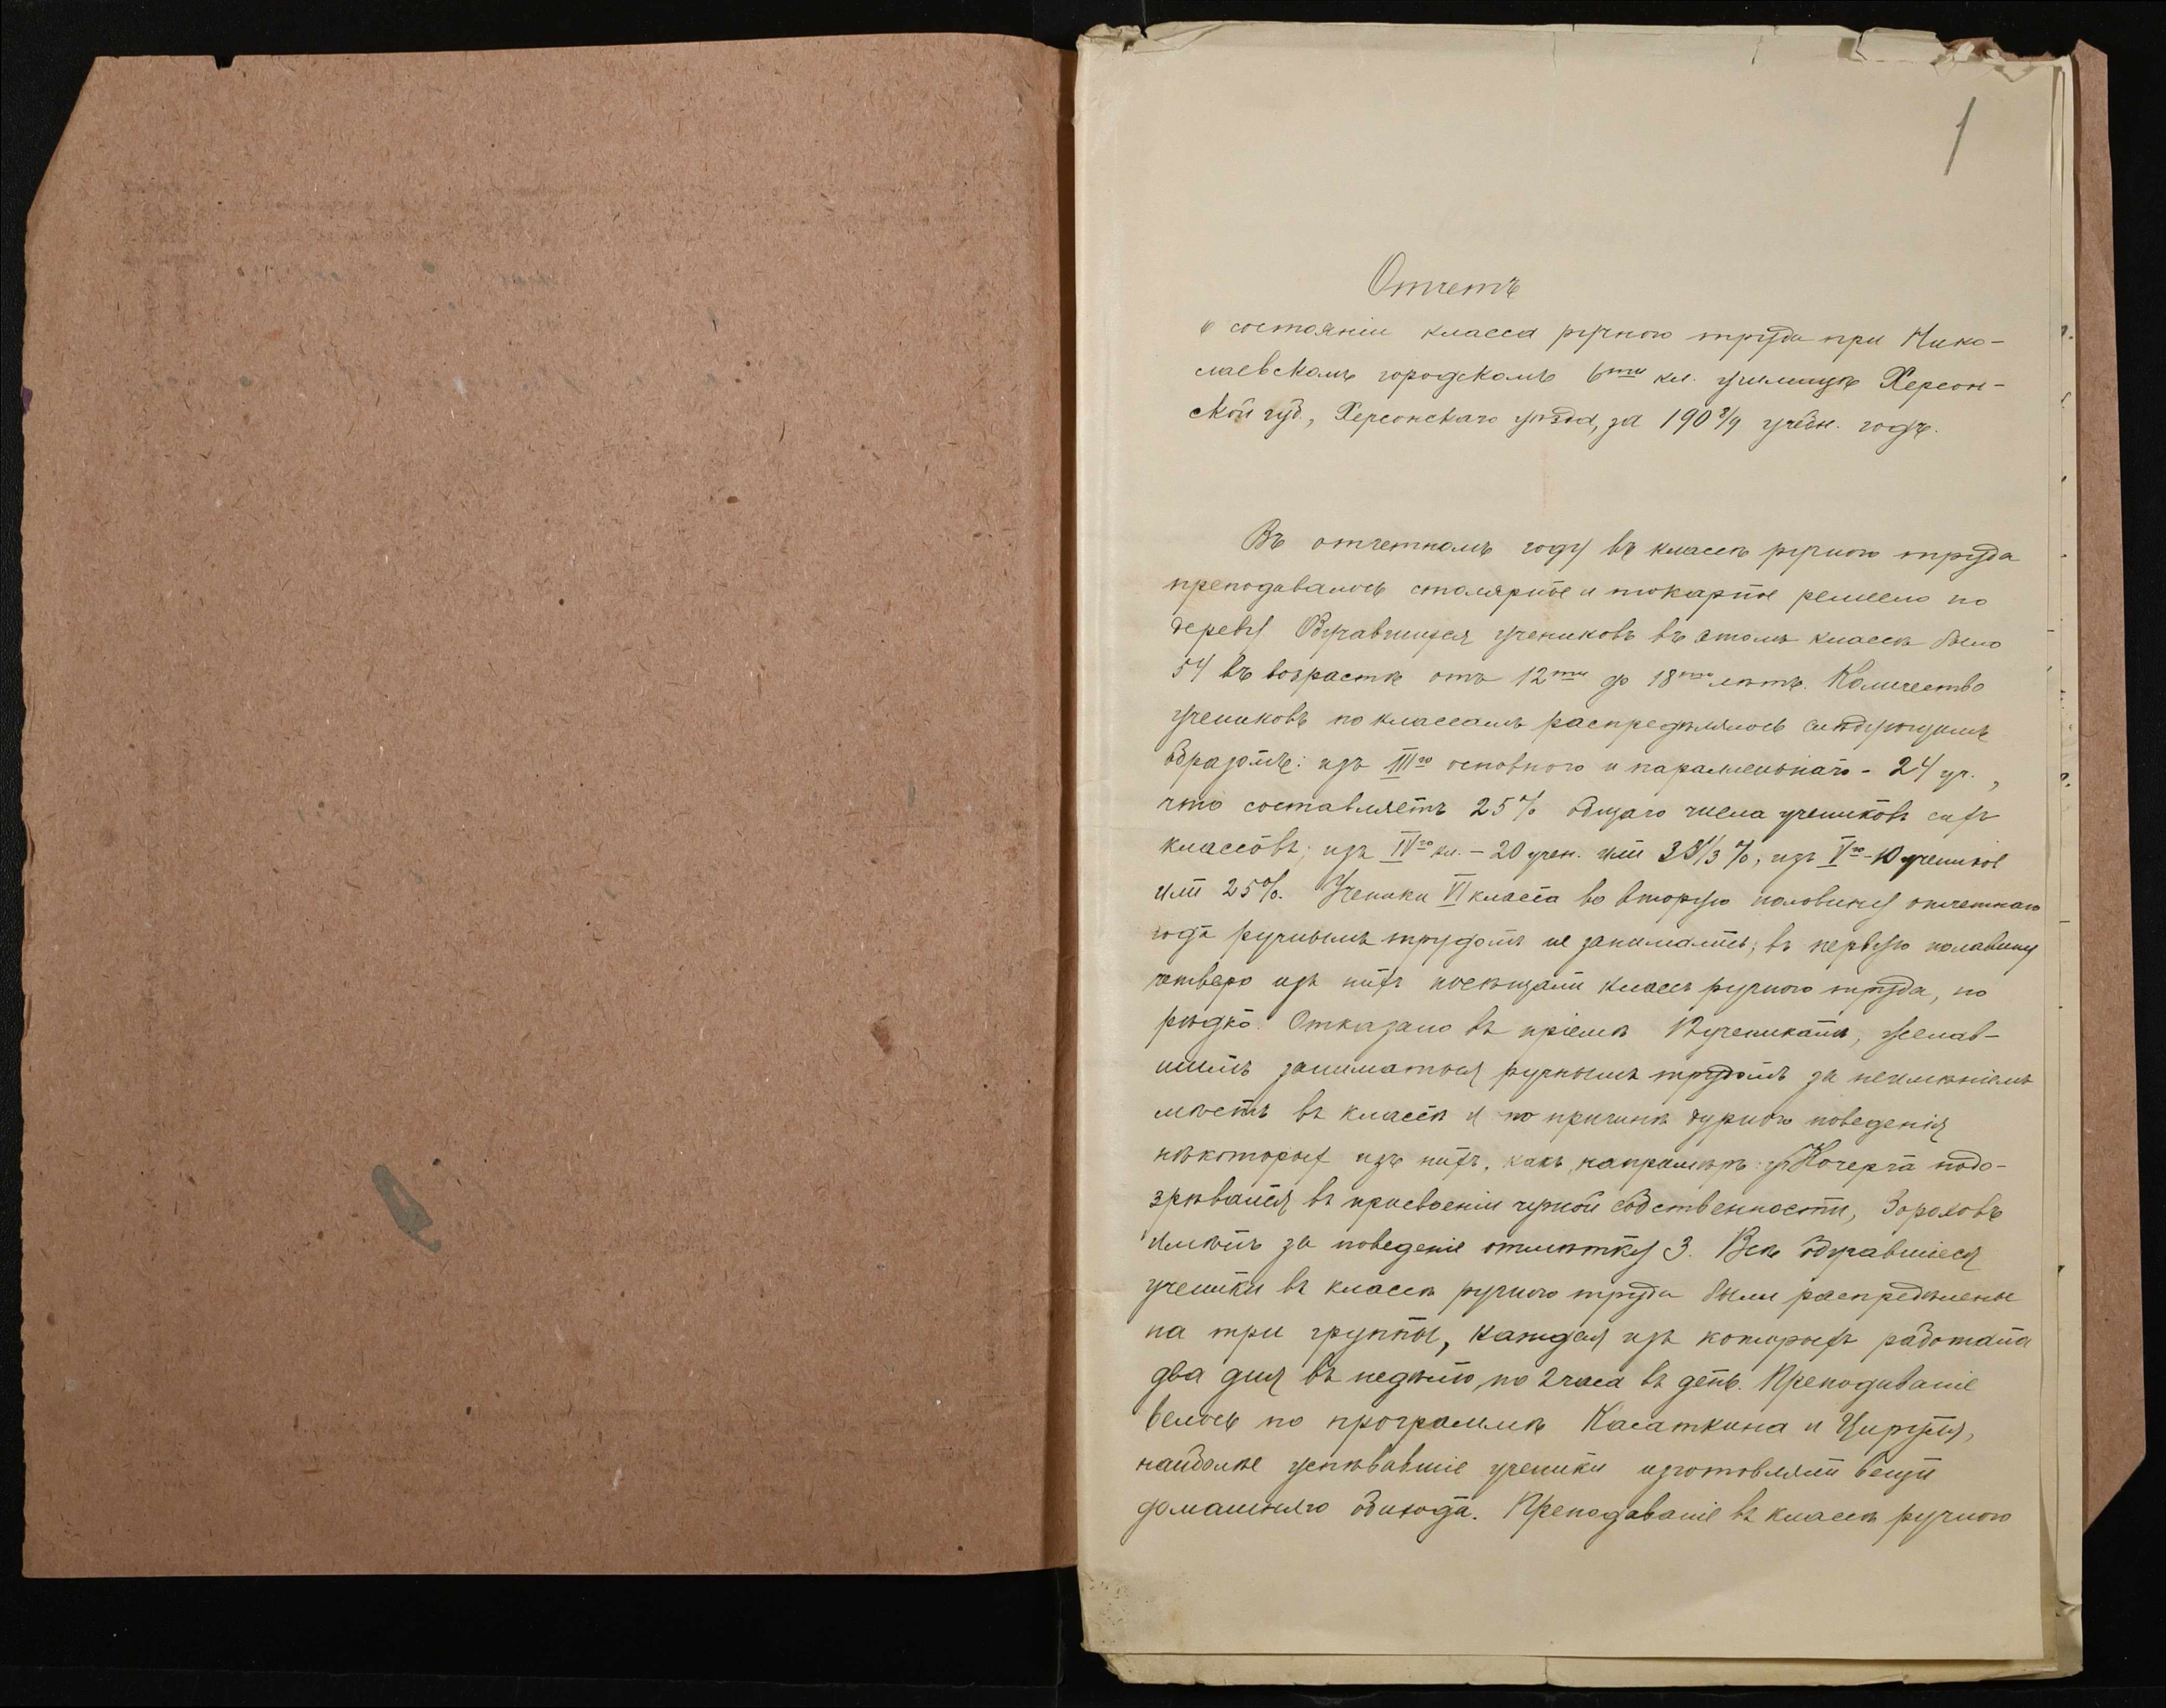 1
Отчетъ
о состояніи класса ручного труда при Нико-
лаевскомъ городскомъ 6ти кл. училищѣ Херсон-
ской губ., Херсонскаго уѣзда, за 1908/9 учебн. годъ.
Въ отчетномъ году въ классѣ ручного труда
преподавалось столярное и токарное ремесло по
дереву. Обучавшихся учениковъ въ этомъ классѣ было
54 въ возрастѣ отъ 12ти до 18ти лѣтъ. Количество
учениковъ по классамъ распредѣлялось слѣдующимъ
образомъ: изъ IIIго основного и параллельнаго - 24 уч.,
что составляетъ 25% общаго числа учениковъ сихъ
классовъ; изъ IVго кл. - 20 учен. или 33 1/3 %, изъ Vго - 10 учениковъ
или 25%. Ученики VI класса во вторую половину отчетнаго
года ручнымъ трудомъ не занимались; въ первую половину
четверо изъ нихъ посѣщали классъ ручного труда, но
рѣдко. Отказано въ пріемѣ 12 ученикамъ, желав-
шимъ заниматься ручнымъ трудомъ за неимѣніемъ
мѣстъ въ классѣ и по причинѣ дурного поведенія
нѣкоторыхъ изъ нихъ, какъ, напримѣръ: Кочерга подо-
зрѣвался въ присвоеніи чужой собственности, Зороховъ
имѣлъ за поведеніе отмѣтку 3. Всѣ обучавшіеся
ученики въ классѣ ручного труда были распредѣлены
на три группы, каждая изъ которыхъ работала
два дня въ недѣлю по 2 часа въ день. Преподаваніе
велось по программѣ Касаткина и Цируля,
наиболѣе успѣвавшіе ученики изготовляли вещи
домашняго обихода. Преподаваніе въ классѣ ручного